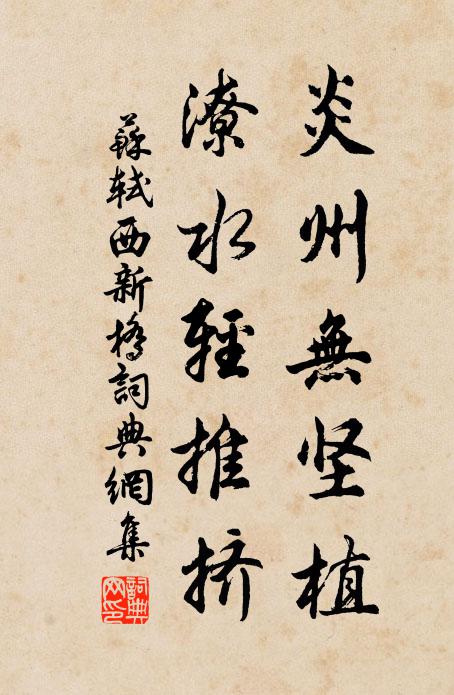 炎州無坚植
潦水輕推挤
蘇軾西新橋詞典網集
詞典网印